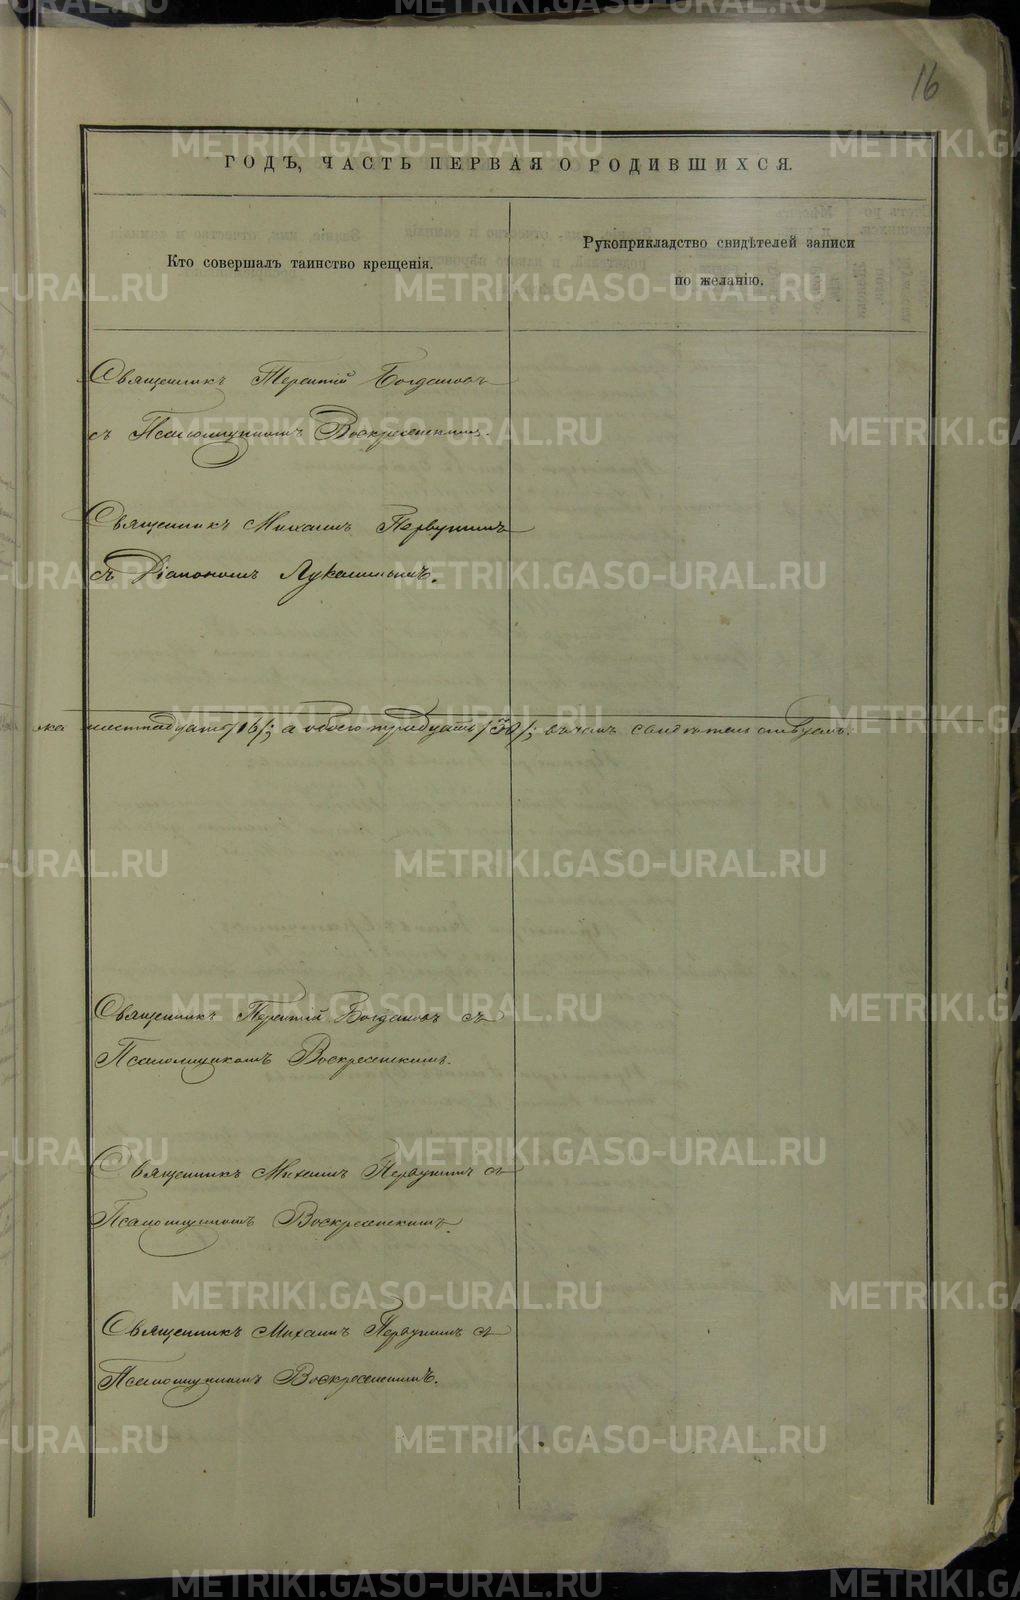 16
ГОДЪ, ЧАСТЬ ПЕРВАЯ О РОДИВШИХСЯ.
Кто совершалъ таинство крещенія.
Рукоприкладство свидѣтелей записи
по желанію.
Священникъ Терентій Богдановъ
съ Псаломщикомъ Воскресенскимъ.
Священникъ Михаилъ Первушинъ
съ Діакономъ Лукашинымъ.
шестнадцать /16/; а обоего тридцать /30/; въ чемъ свидѣтельствуемъ.
Священникъ Терентій Богдановъ съ
Псаломщикомъ Воскресенскимъ.
Священникъ Михаилъ Первушинъ съ
Псаломщикомъ Воскресенскимъ.
Священникъ Михаилъ Первушинъ съ
Псаломщикомъ Воскресенскимъ.
METRIKI.GASO-URAL.RU